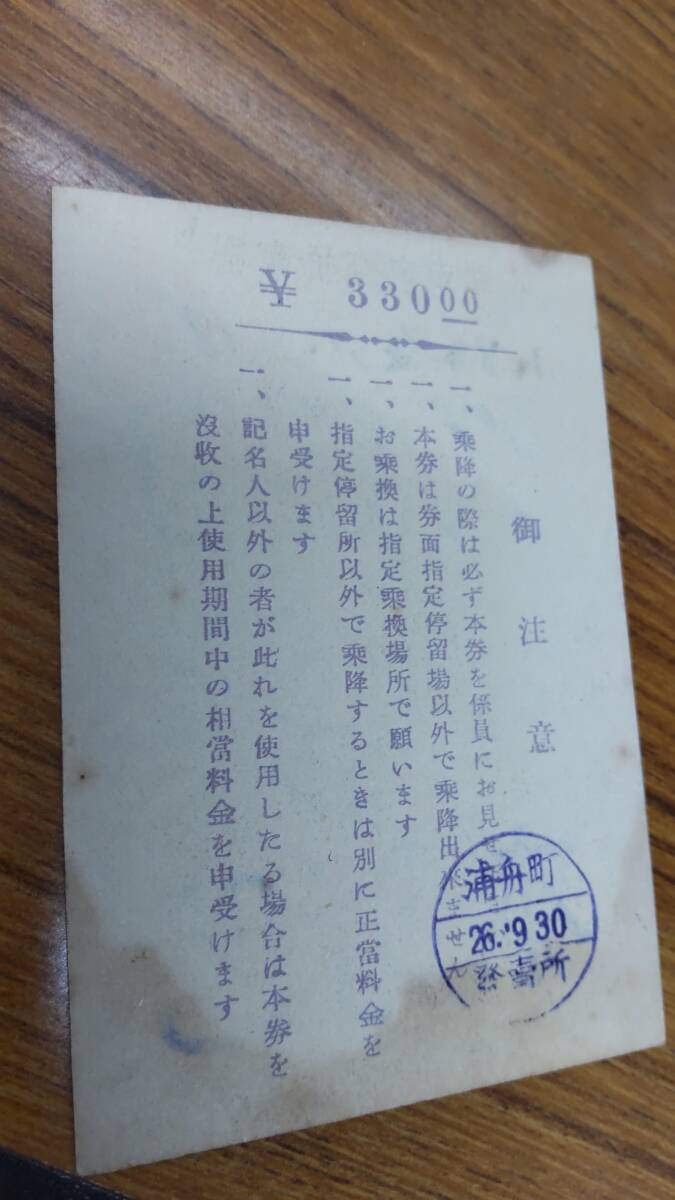 ¥ 330.00
御注意
一、乗降の際は必ず本券を係員にお見せ
一、本券は券面指定停留場以外で乗降出来ません
一、お乗換は指定乗換場所で願います
一、指定停留所以外で乗降するときは別に正當料金を
申受けます
一、記名人以外の者が此れを使用したる場合は本券を
沒收の上使用期間中の相當料金を申受けます
浦舟町
26.9.30
發賣所